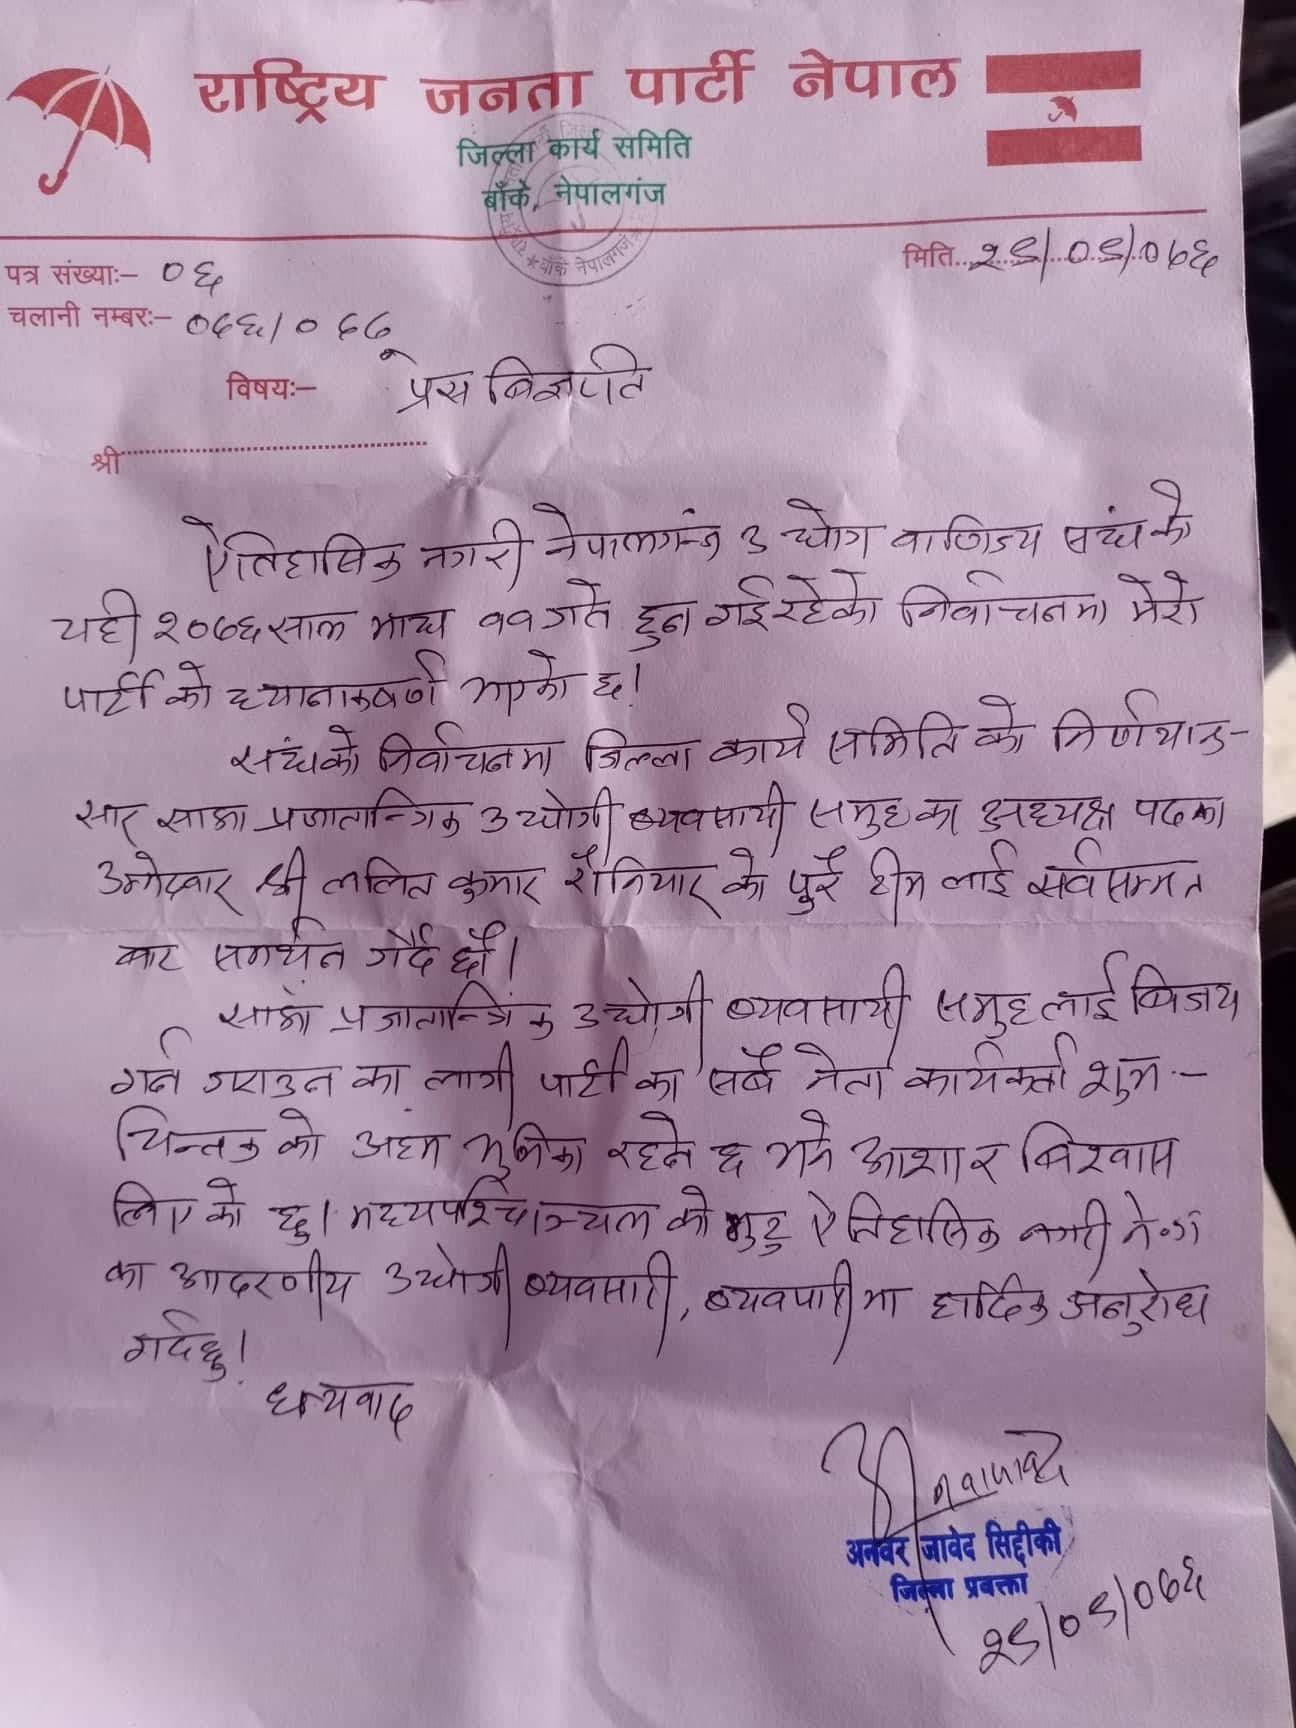 राष्ट्रिय जनता पार्टी नेपाल
जिल्ला कार्य समिति
बाँके, नेपालगंज
बाँके नेपालगंज
पत्र संख्याः- ०६
मिति २९/०९/०७६
चलानी नम्बरः- ०७६/०७७
विषयः- प्रेस बिज्ञप्ति
श्री
ऐतिहासिक नगरी नेपालगन्ज उद्योग वाणिज्य संघको
यही २०७६ साल माघ ११ गते हुन गईरहेको निर्वाचनमा मेरो
पार्टीको ध्यानाकर्षण भएको छ।
संघको निर्वाचनमा जिल्ला कार्य समितिको निर्णयानु-
सार साझा प्रजातान्त्रिक उद्योगी ब्यवसायी समुहका अध्यक्ष पदका
उम्मेदवार श्री ललित कुमार रौनियार को पुरै टीम लाई सर्वसम्मत
बाट समर्थन गर्दै छौं।
साझा प्रजातान्त्रिक उद्योगी ब्यवसायी समुहलाई बिजय
गर्न गराउन का लागी पार्टी का सबै नेता कार्यकर्ता शुभ-
चिन्तक को अहम भुमिका रहने छ भने आशा र बिश्वास
लिएको छु। मध्यपश्चिमाञ्चल को मुटु ऐतिहासिक नगरी ने.गं
का आदरणीय उद्योगी ब्यवसायी, ब्यवपारीमा हार्दिक अनुरोध
गर्दछु।
धन्यवाद
अनवर जावेद सिद्दीकी
जिल्ला प्रवक्ता
२९/०९/०७६